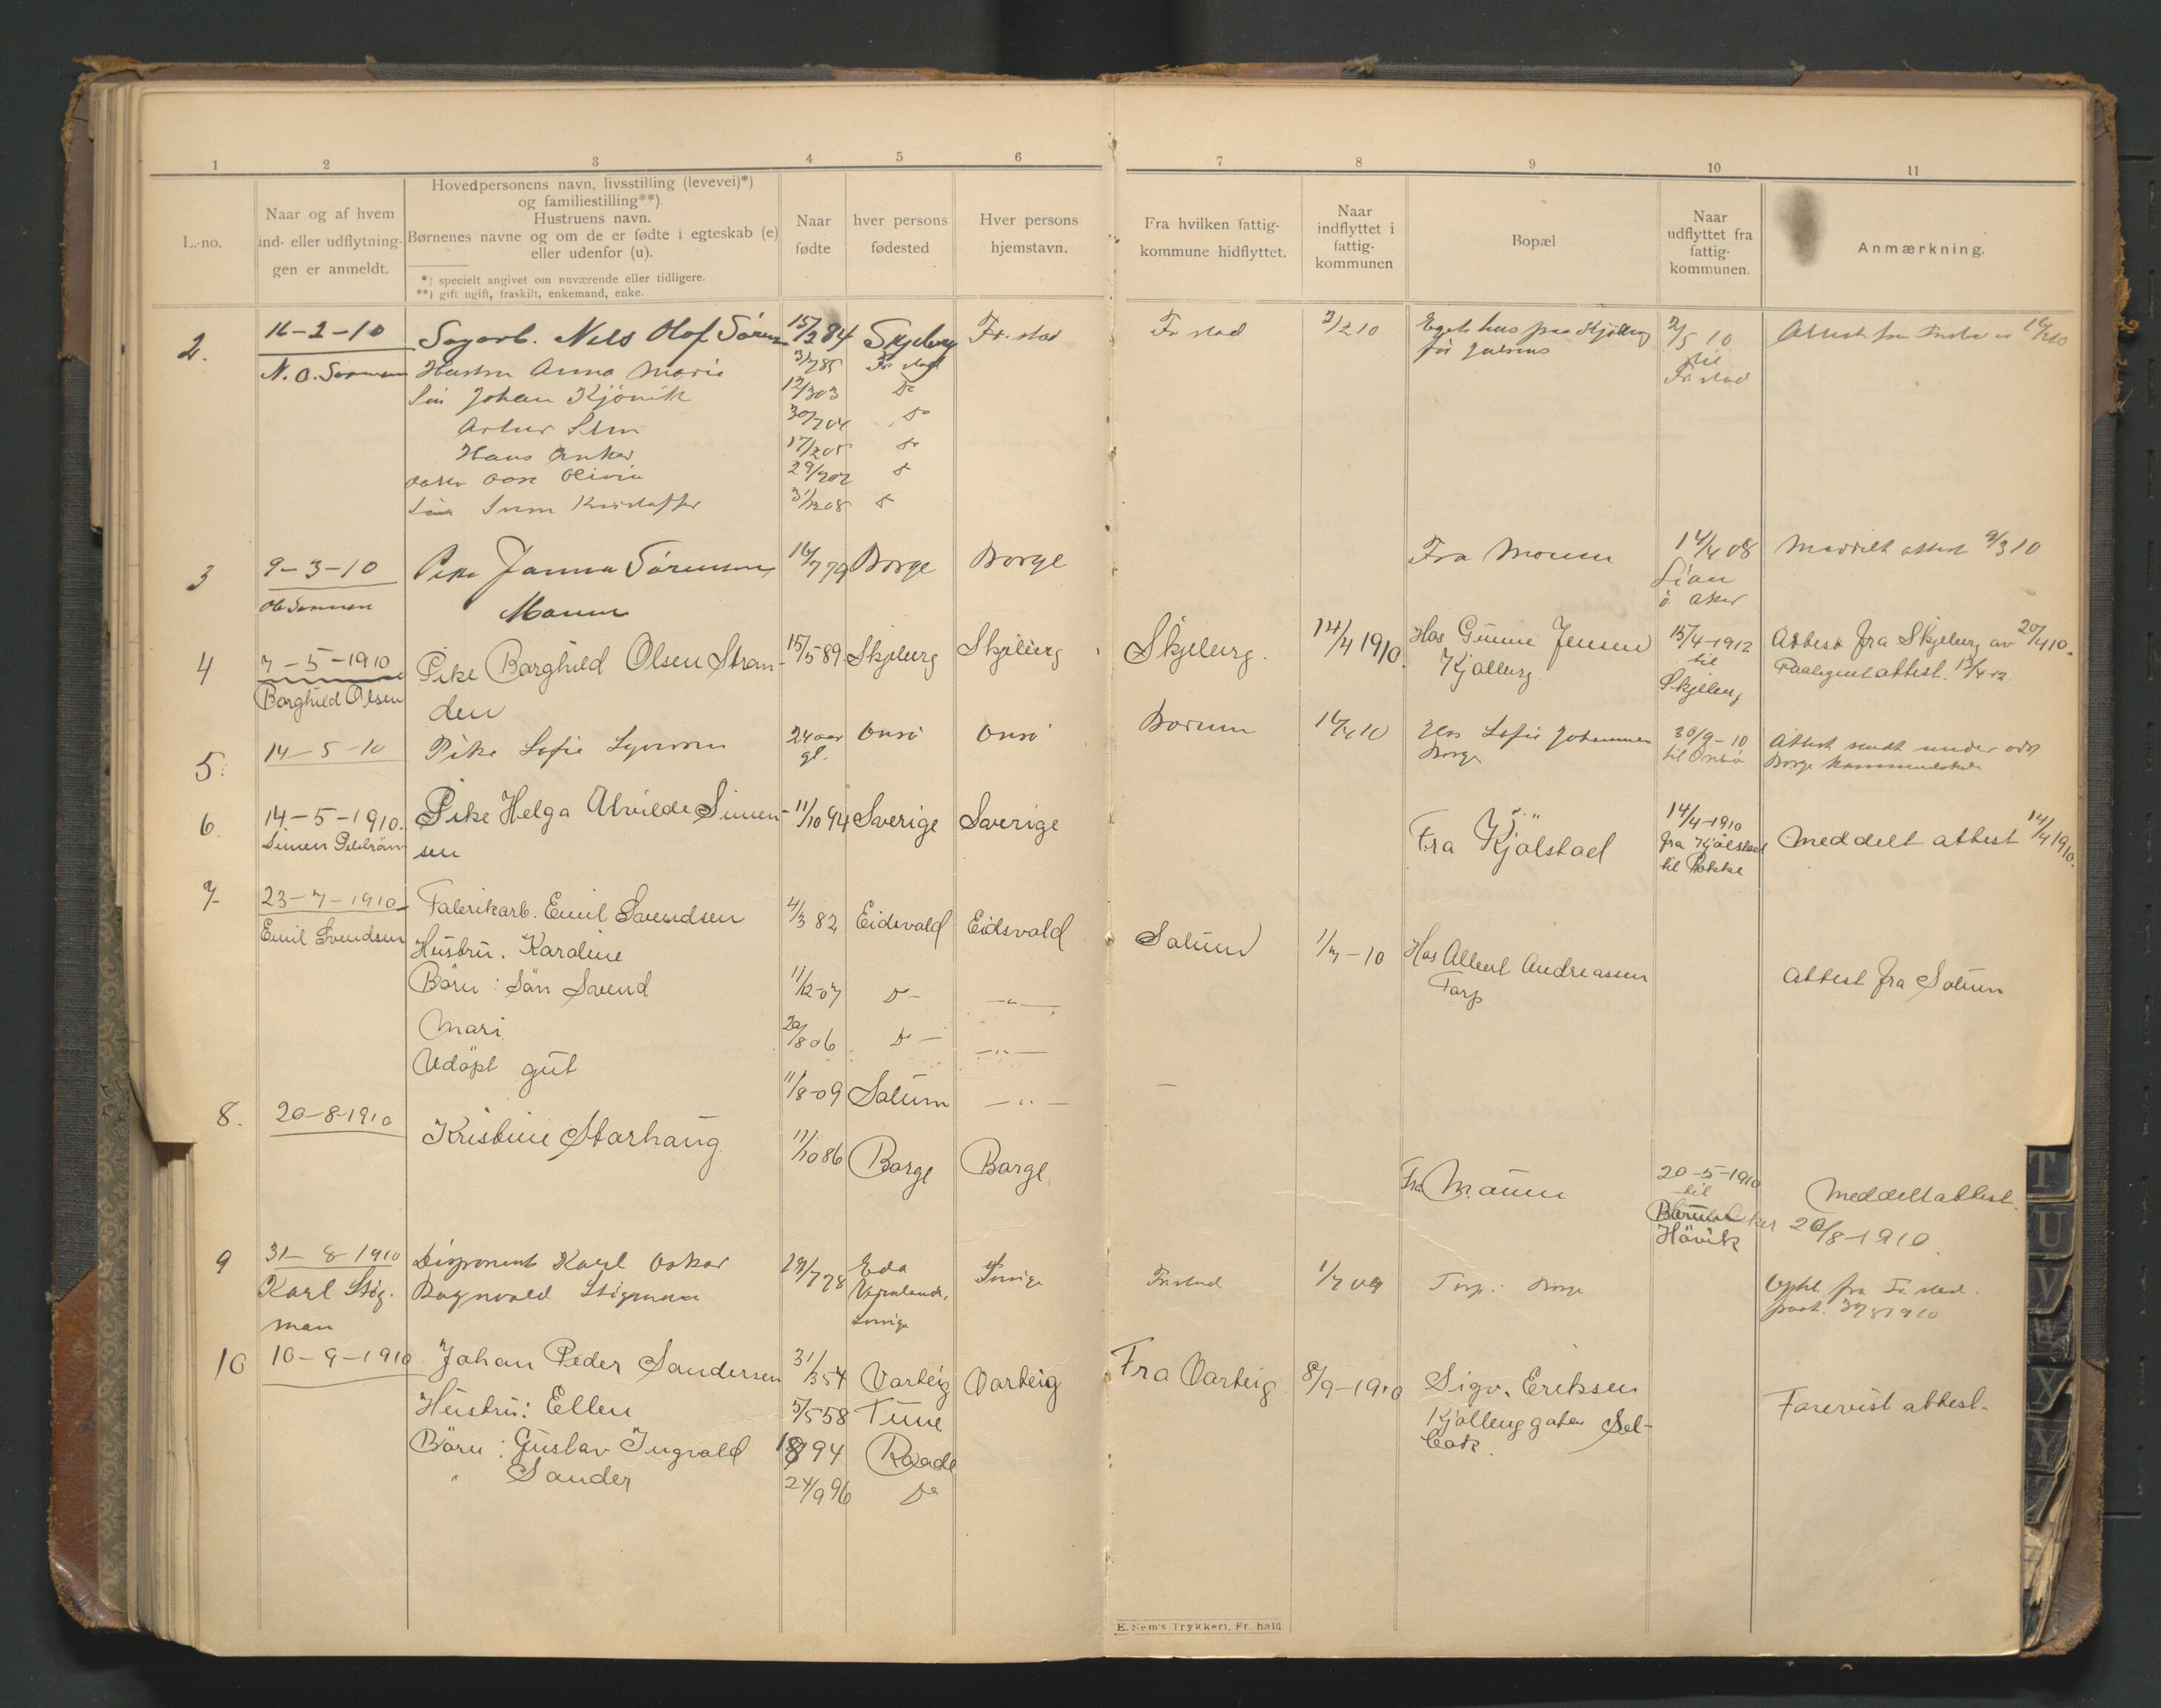 1 2 3 4 5 6 7 8 9 10 11
L.-no.
Naar og af hvem
ind- eller udflytnin-
gen er anmeldt.
Hovedpersonens navn, livsstilling (levevei)*)
og familiestilling**)
Hustruens navn.
Børnenes navne og om de er fødte i egteskab (e)
eller udenfor (u).
*) specielt angivet om nuværende eller tidligere.
**) gift ugift, fraskilt, enkemand, enke.
Naar
fødte
hver persons
fødested
Hver persons
hjemstavn.
Fra hvilken fattig-
kommune hidflyttet.
Naar
indflyttet i
fattig-
kommunen
Bopæl
Naar
udflyttet fra
fattig-
kommunen.
Anmærkning.
2. 16-2-10 Sagarb. Nils Olof Sören 15/2 84 Skjeberg Fr. stad Fr stad 3/2 10 Egets hus paa Kjölberg 2/5 10
N. O. Sörensen Hustru Anna Marie 3/7 85 Fr stad til
Sön Johan Kjönik 12/3 03 Do Fr stad
30/7 04 Do
Hans Anker 17/2 05 Do
Olivia 29/7 07
Kristoffer
3 9-3-10 Pike Janna Sörensen 16/7 79 Borge Borge Fra Moum 14/4 08 Meddelt attest 9/3 10
Ole Sörensen Moum Lian
ö Aker
4 7-5-1910 Pike Borghild Olsen Stran- 15/5 89. Skjeberg Skjeberg Skjeberg. 14/4 1910. Hos Gunne Jensen 15/4-1912 Attest fra Skjeberg av 20/4 10.
Borghild Olsen den Kjölberg til Paategnet attest. 13/4 12.
Skjeberg
5. 14-5-10 Pike Sofie 24 aar Onsö Onsö 16/4 10 Hos Sofie Johannesen 30/9-10 Attest sendt under
gl. Borge til Onsö Borge
6. 14-5-1910. Pike Helga Alvilde Simen- 11/10 94 Sverige Sverige Fra Kjölstad 14/4-1910 Meddelt attest 14/4 1910.
Simen sen fra Kjölstad
til Rokke
7 23-7-1910 Fabrikarb. Emil Svendsen 4/3 82 Eidsvold Eidsvold Solum 1/7-10 Hos Albert Andreassen Attest fra Solum
Emil Svendsen Hustru. Karoline Torp
Börn: Sön Svend 11/12-07 Do- -"-
Mari 20/8 06 Do- -"-
Udöpt gut 11/8-09 Solum -"- -
8. 20-8-1910 Kristine Storhaug 11/10 86 Borge Borge Fra Moum 20-5-1910 Meddelt attest.
til 20/8-1910.
Bærum Aker
Hövik
9 31-8-1910 Disponent Karl Oskar 29/7 78 Eda Sverige Fr. stad 1/7 09 Torp: Borge Opht fra Fr. stad.
Karl Stig- Ragnvald Stigman Vermland,
man Sverige
10 10-9-1910 Johan Peder Sandersen 31/3 54 Varteig Varteig Fra Varteig 8/9-1910 Sigv. Eriksen Forevist attest.
Hustru: Ellen 5/5 58 Tune Kjölberggaten Sel-
Börn: Gustav Ingvald 94 Raade bak.
" Sander 24/9 96 Do
E. Sem's Trykkeri, Fr. hald.
T
U
V
W
X
Y